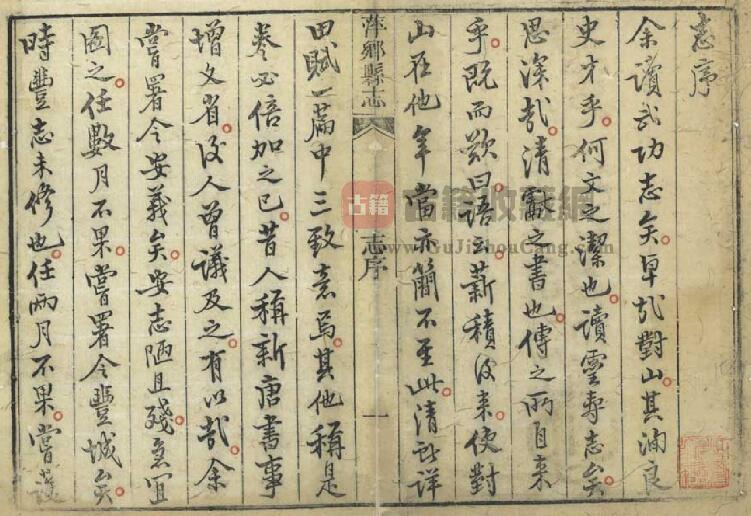 志序
余讀武功志矣卓哉對山其洵良
史才乎何文之潔也讀靈壽志矣
思深哉清獻之書也傳之所自來
乎既而歎曰語云薪積後來使對
山在他年當亦簡不至此清詳
萍鄉縣志
志序
一
田賦一篇中三致意焉其他稱是
卷必倍加之已昔人稱新唐書事
增文省後人曾議及之有以哉余
嘗署令安義矣安志陋且殘急宜
圖之任數月不果嘗署令豐城矣
時豐志未修也任兩月不果嘗護
古籍
古籍收藏網
www.GuJiShouCang.com